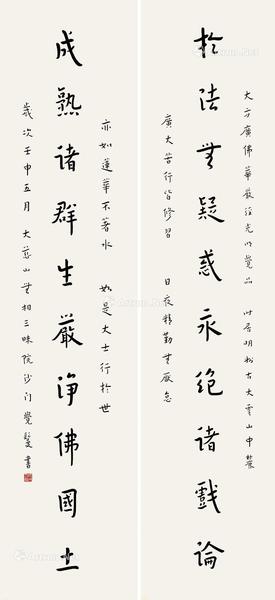 大方廣佛華嚴經光明覺品
於法無疑惑永絕諸戲論
廣大苦行皆修習 日夜精勤無厭怠
亦如蓮華不著水 如是大士行於世
成熟諸群生嚴淨佛國土
歲次壬申五月 大慈山無相三昧院沙门覺髮書